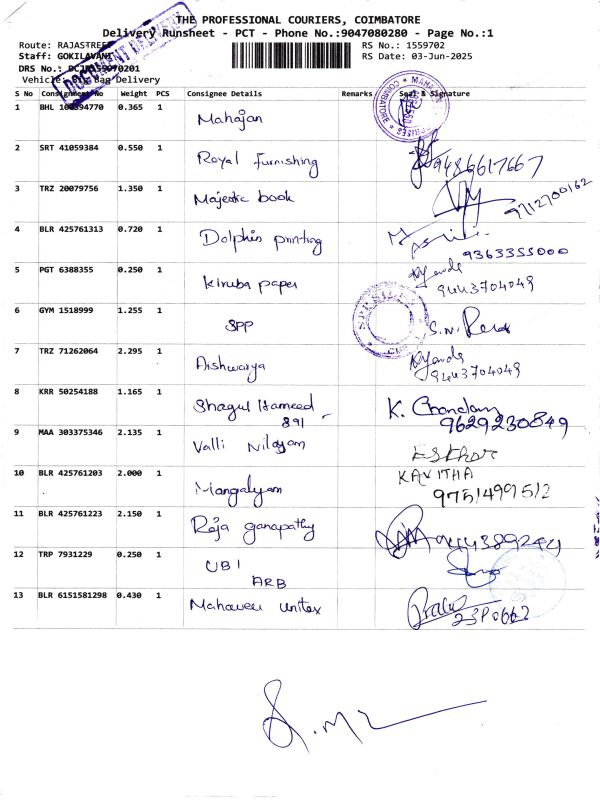 THE PROFESSIONAL COURIERS, COIMBATORE
Delivery Runsheet - PCT - Phone No.:9047080280 - Page No.:1
Route: RAJASTREET RS No.: 1559702
Staff: GOKILAVANI RS Date: 03-Jun-2025
DRS No.:
Vehicle: Bag Delivery
S No Consignment No Weight PCS Consignee Details Remarks Seal & Signature
1 BHL 0.365 1 Mahajan
2 SRT 41059384 0.550 1 Royal Furnishing 9486617667
3 TRZ 20079756 1.350 1 Majestic book 9712700162
4 BLR 425761313 0.720 1 Dolphin printing 9363355000
5 PGT 6388355 0.250 1 Kiruba paper 9443704049
6 GYM 1518999 1.255 1 SPP S.N.
7 TRZ 71262064 2.295 1 Aishwarya 9443704049
8 KRR 50254188 1.165 1 Shagul Hameed K.
891 9629230849
9 MAA 303375346 2.135 1 Valli Nilayam
10 BLR 425761203 2.000 1 Mangalyam KAVITHA
9751499512
11 BLR 425761223 2.150 1 Raja ganapathy
12 TRP 7931229 0.250 1 UBI
ARB
13 BLR 6151581298 0.430 1 Mahaveer unitex